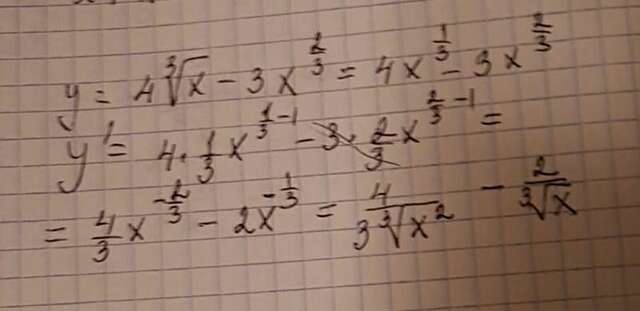 y = 4∛x − 3x^(2/3) = 4x^(1/3) − 3x^(2/3)
y' = 4·(1/3)x^(1/3 −1) − 3·(2/3)x^(2/3 −1) =
= (4/3)x^(−2/3) − 2x^(−1/3) = 4/(3∛(x²)) − 2/∛x